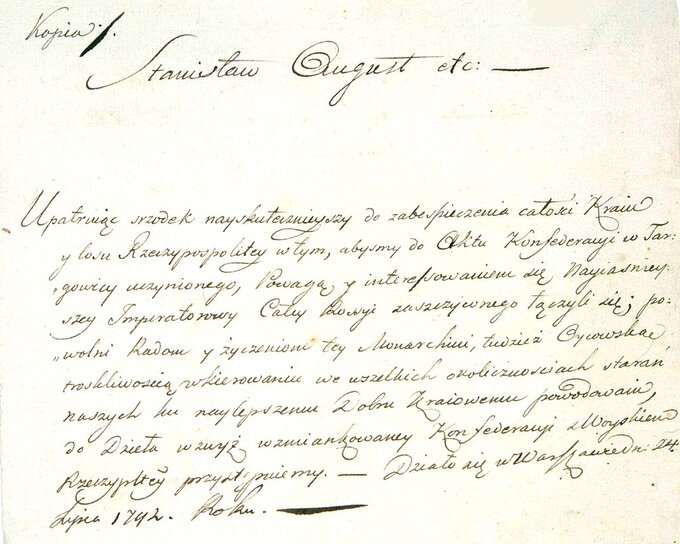 Kopia
Stanisław August etc: —
Upatruiąc srzodek nayskutecznieyszy do zabespieczenia całości Kraiu
y losu Rzeczypospolitey w tym, abysmy do Aktu Konfederacyi w Tar-
„gowicy uczynionego, Powagą y interessowaniem się Nayiaśniey-
szey Imperatorowy Całey Rossyi zaszczyconego łączyli się; po-
„wolni Radom y życzeniom tey Monarchini, tudzież Oycowską
troskliwością w kierowaniu we wszelkich okolicznościach starań
naszych ku naylepszemu Dobru Kraiowemu powodowani,
do Dzieła wzwyż wzmiankowaney Konfederacyi z Woyskiem
Rzeczyplтey przystępuiemy. — Działo się w Warszawie dn: 24.
Lipca 1792. Roku. —